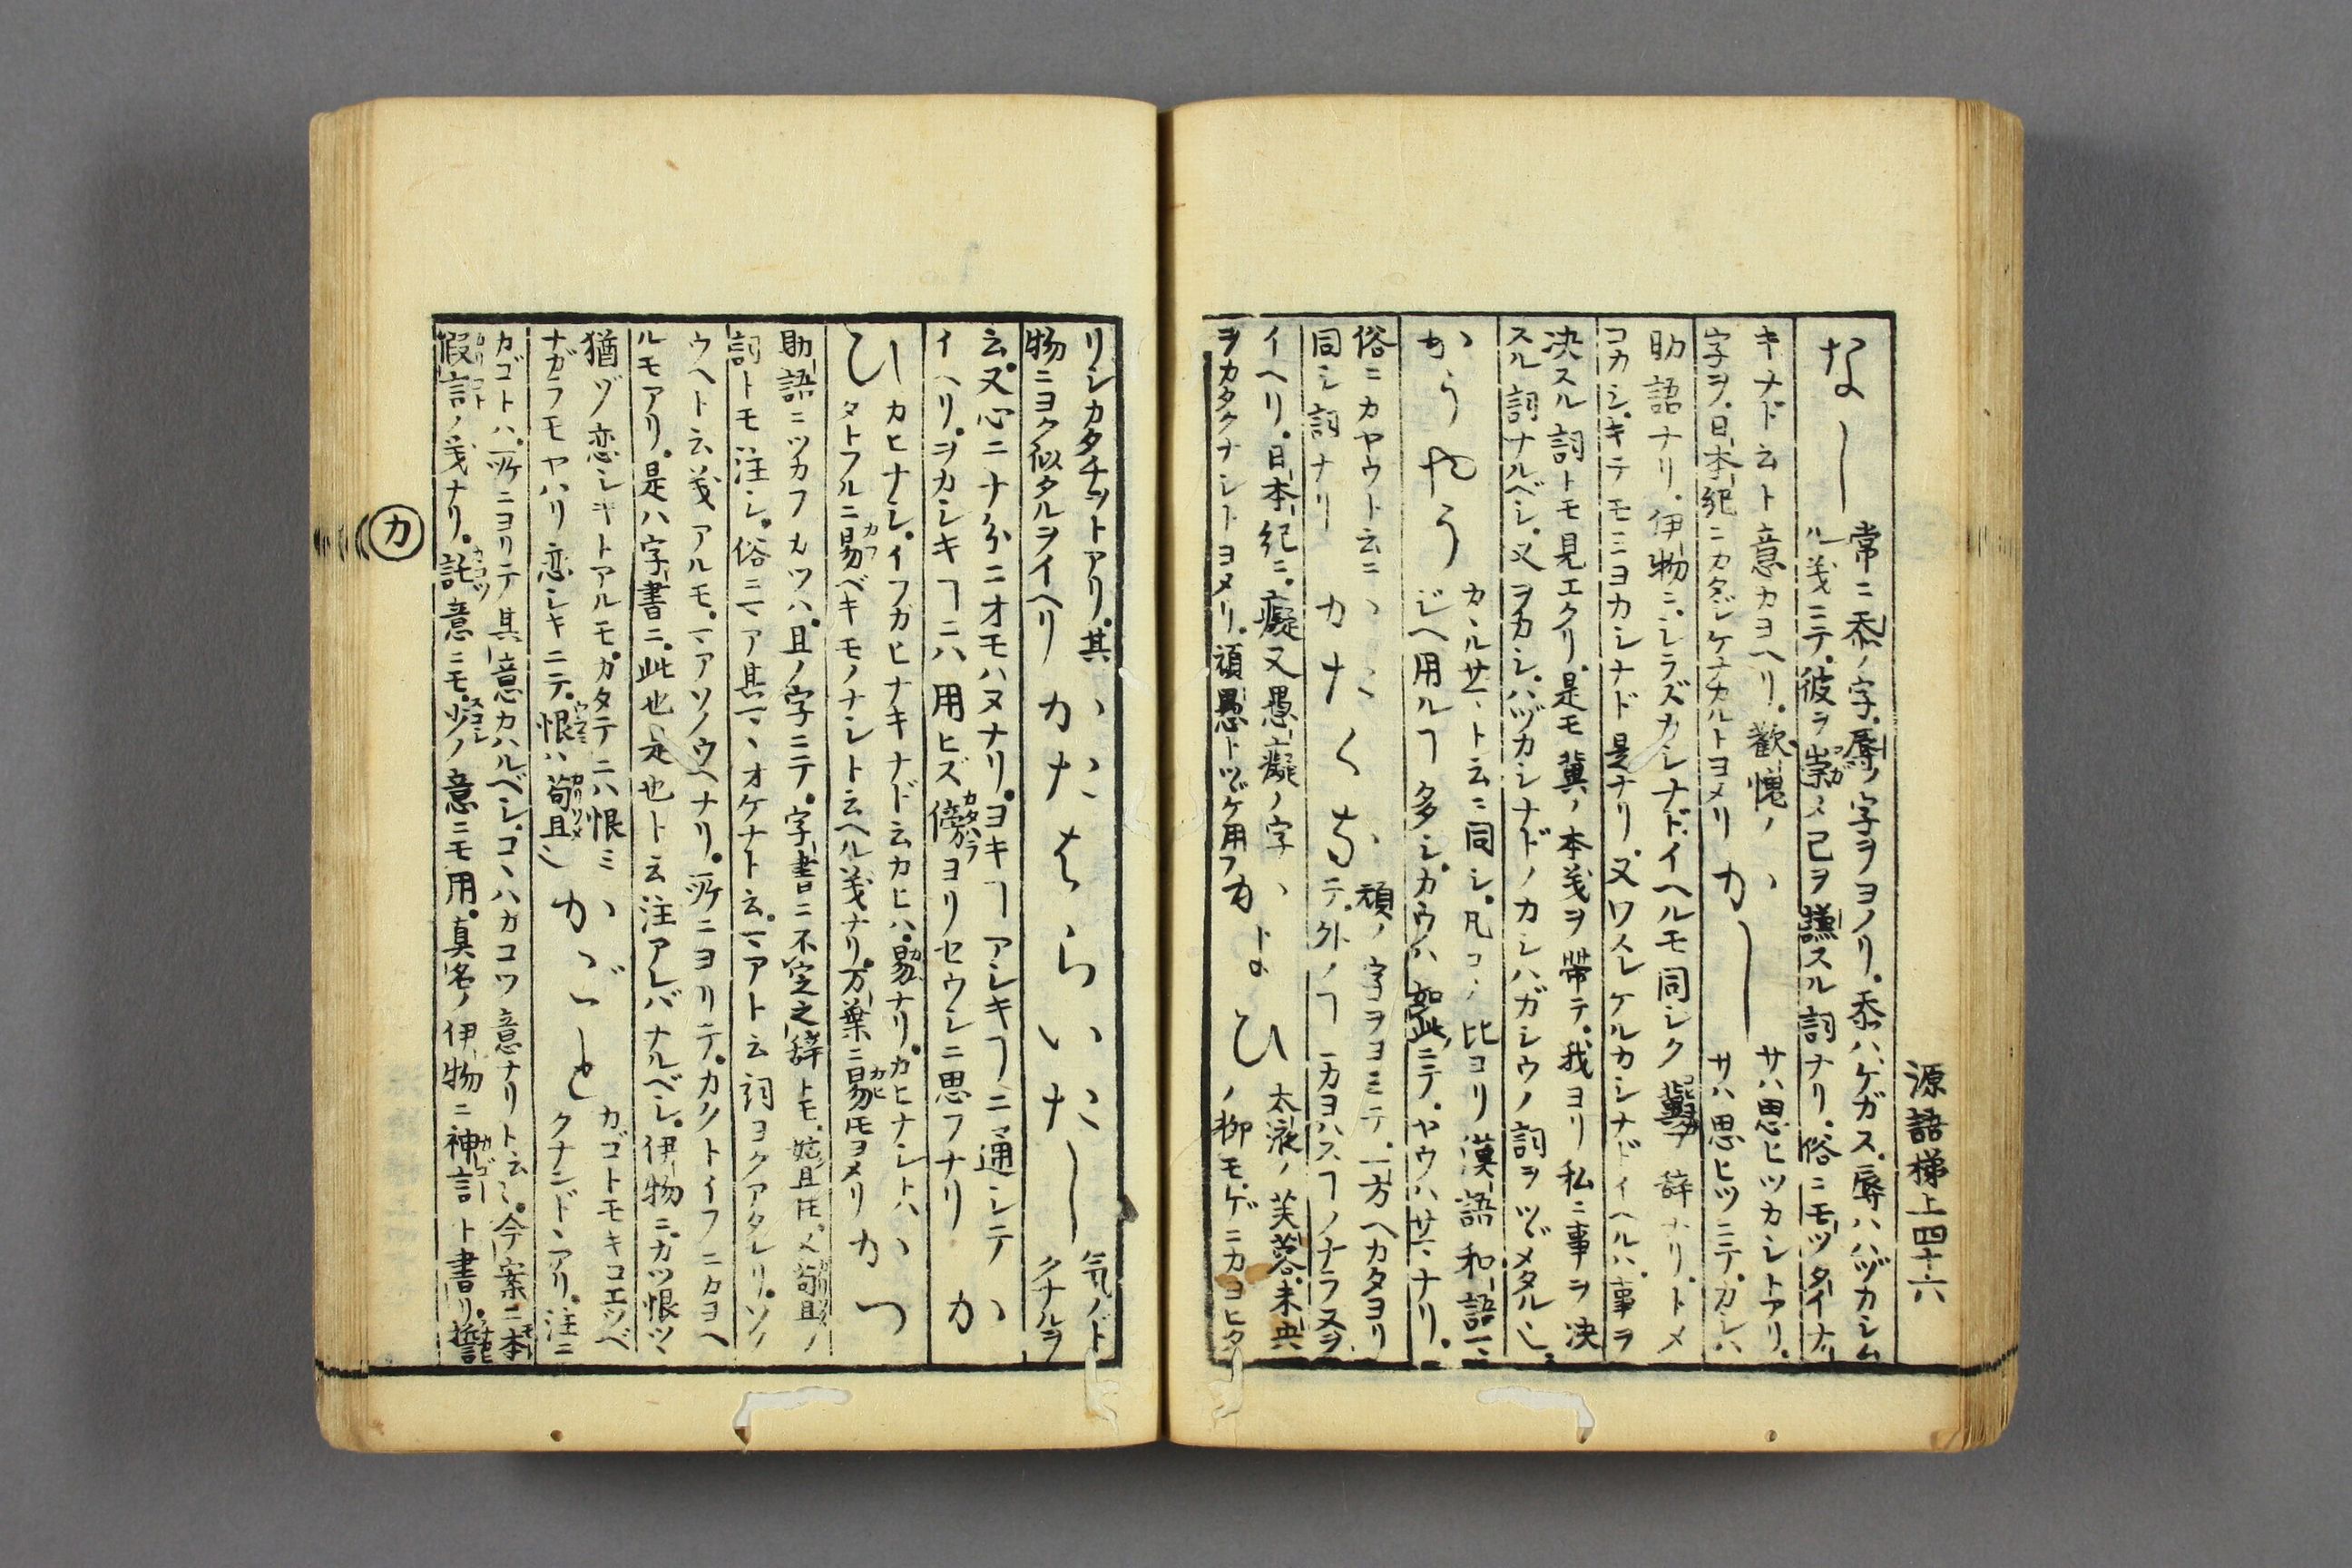 源語梯上四十六
なし
常ニ忝ノ字辱ノ字ヲヨメリ。忝ハ、ケガス。辱ハ、ハヅカシム
ル義ニテ。彼ヲ崇メ己ヲ謙スル詞ナリ。俗ニモツタイナ
キナド云ト意カヨヘリ。歡愧ノ
字ヲ。日本紀ニカタジケナカルトヨメリ
かし
サハ思ヒツカシトアリ。
サハ思ヒツニテ。カシハ
助語ナリ。伊物ニ。シラズカシナド、イヘルモ同シク冀フ辞ナリ。トメ
コカシ。キテモミヨカシナド是ナリ。又ワスレケルカシナドイヘルハ、事ヲ
决スル詞トモ見エタリ。是モ冀ノ本義ヲ帶テ。我ヨリ私ニ事ヲ决
スル詞ナルベシ。又ヲカシ。ハヅカシナドノカシハガシウノ詞ヲツヾメタル也。
かうやう
カヽルサマト云ニ同シ。凡コノ比ヨリ漢語和語マ
ジヘ用ルヿ多シ。カウハ如此ニテ。ヤウハサマナリ。
俗ニカヤウト云ニ
同シ詞ナリ
かたくな
頑ノ字ヲヨミテ。一方ヘカタヨリ
テ。外ノヿ一カヨハスヿノナラヌヲ
イヘリ。日本紀ニ。癡又愚癡ノ字
ヲカタクナシトヨメリ。頑愚トツヾケ用フ
かよひ
太液ノ芙蓉未央
ノ柳モ。ゲニカヨヒタ
リシカタチヲトアリ。其
物ニヨク似タルヲイヘリ
かたはらいたし
気ノド
クナルヲ
云。又心ニナ分ニオモハヌナリ。ヨキヿアシキヿニ通シテ
イヘリ。ヲカシキヿニハ用ヒズ傍ヨリセウシニ思フナリ
かひ
カヒナシ。イフカヒナキナド云カヒハ。易ナリ。カヒナシトハ
タトフルニ易ベキモノナシト云ヘル義ナリ。万葉ニ易モヨメリ
かつ
助語ニツカフカツハ。且ノ字ニテ。字書ニ不定之辞トモ。姑且ﾄﾓ。又苟且ノ
詞トモ注シ。俗ニマア其マヽオケナト云。マアト云詞ヨクアタレリ。ソノ
ウヘト云義アルモ。マアソノウヘナリ。所ニヨリテ。カクトイフニカヨヘ
ルモアリ。是ハ字書ニ。此也是也ト云注アレバナルベシ。伊物ニ。カツ恨ツヽ
猶ゾ恋シキトアルモ。カタテニハ恨ミ
ナガラモヤハリ恋シキニテ。恨ハ苟且也
かごと
カゴトモキコエツベ
クナンドヽアリ。注ニ
カゴトハ。所ニヨリテ其意カハルベシ。コヽハカコツ意ナリト云々。今案ニ本
假言ノ義ナリ。託意ニモ。少ノ意ニモ用。真名ノ伊物ニ神言ト書リ。
カ